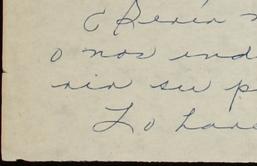 ¿Sería
o nos ind
ria su p
Lo hare